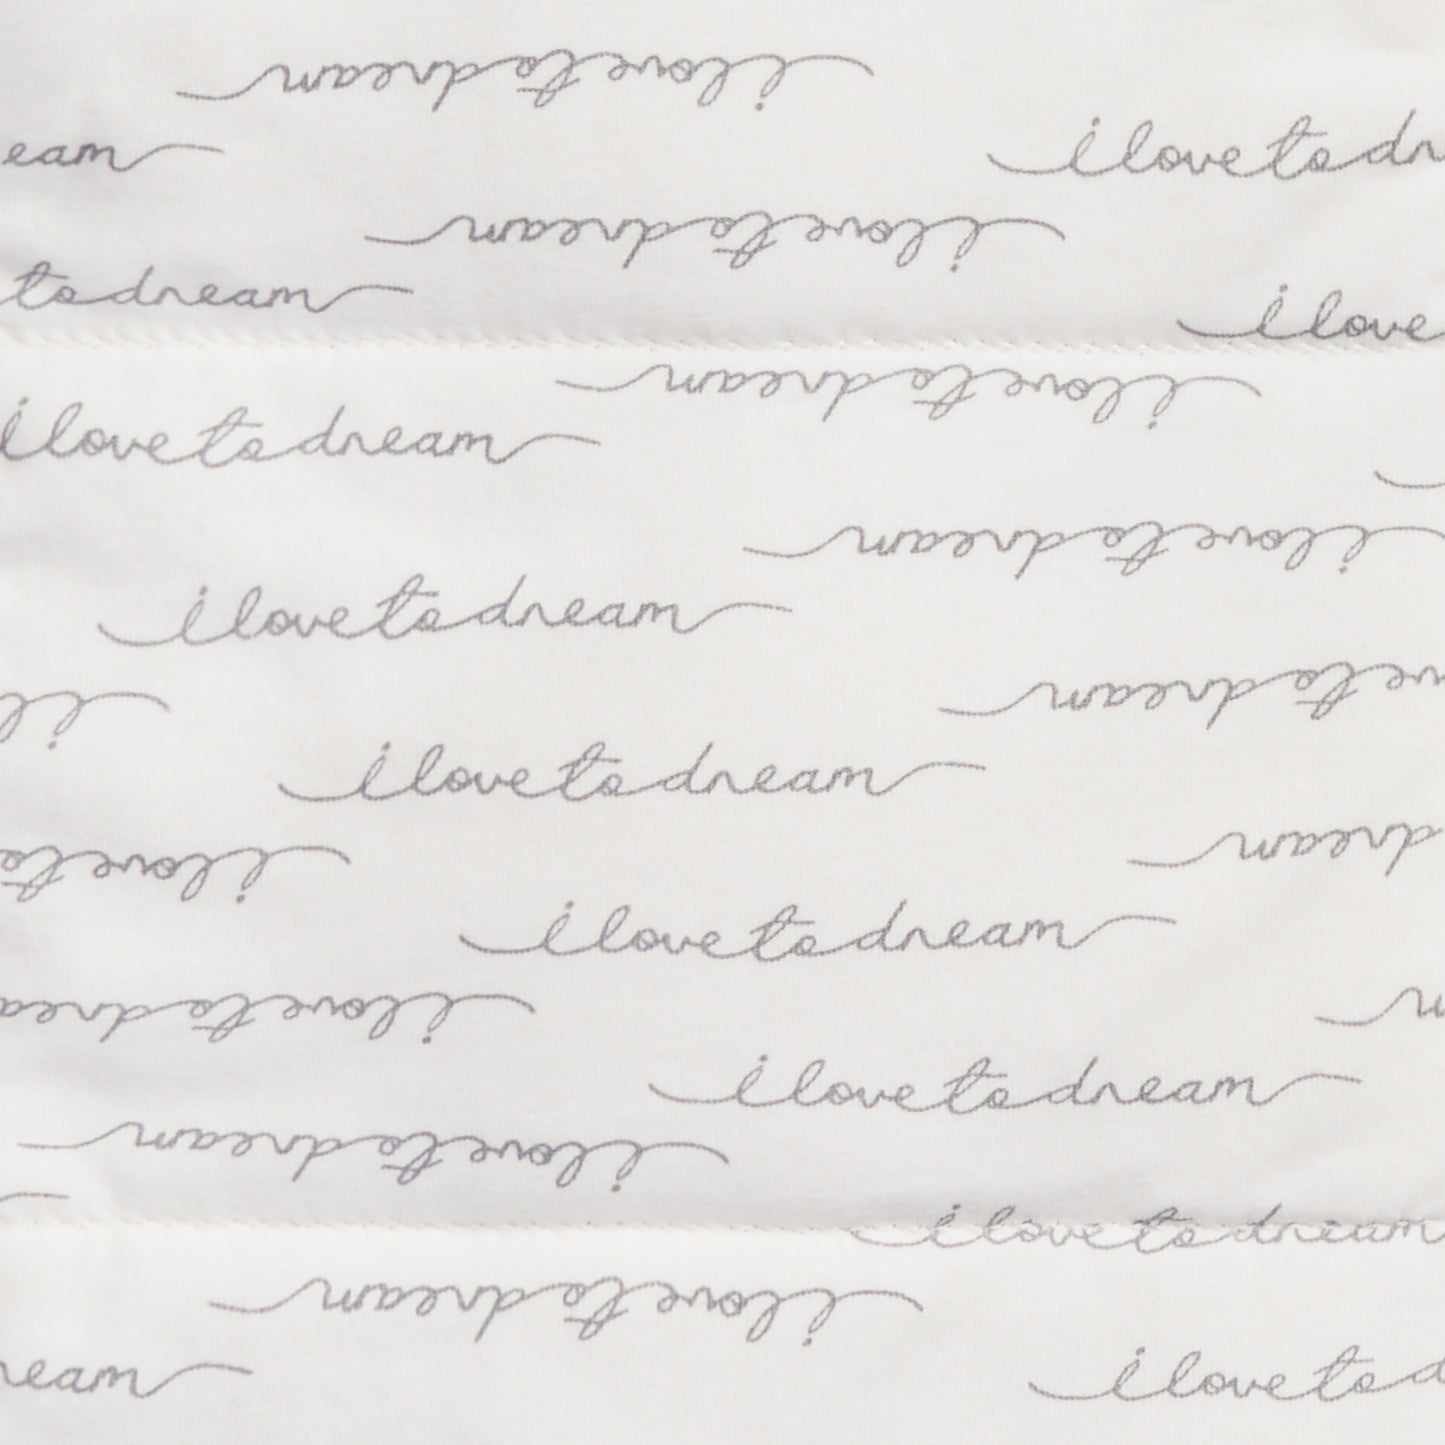 i love to dream
eam
i love to dr
i love to dream
to dream
i love
i love to dream
i love to dream
i love to dream
i love to dream
ve to dream
il
i love to dream
dream
love to
i love to dream
m
i love to drea
i love to dream
i love to dream
i love to dream
i love to dream
ream
i love to d